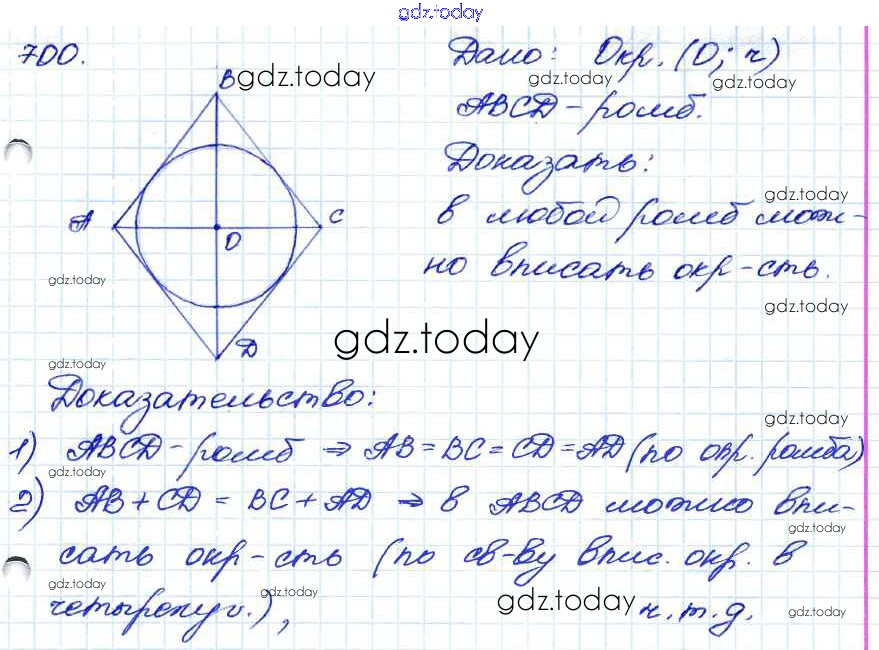 gdz.today
700.
Дано: Окр. (О; r)
B gdz.today
gdz.today gdz.today
ABCD - ромб.
Доказать:
gdz.today
в любой ромб мож-
A C
O
но вписать окр-сть.
gdz.today
gdz.today
gdz.today
D
gdz.today
Доказательство:
gdz.today
1) ABCD - ромб ⇒ AB = BC = CD = AD (по опр. ромба)
gdz.today
2) AB + CD = BC + AD ⇒ в ABCD можно впи-
gdz.today
сать окр-сть (по св-ву впис. окр. в
gdz.today
gdz.today
четырехуг.), ч.т.д.
gdz.today
gdz.today